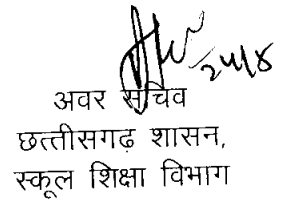 24/8
अवर सचिव
छत्तीसगढ़ शासन,
स्कूल शिक्षा विभाग